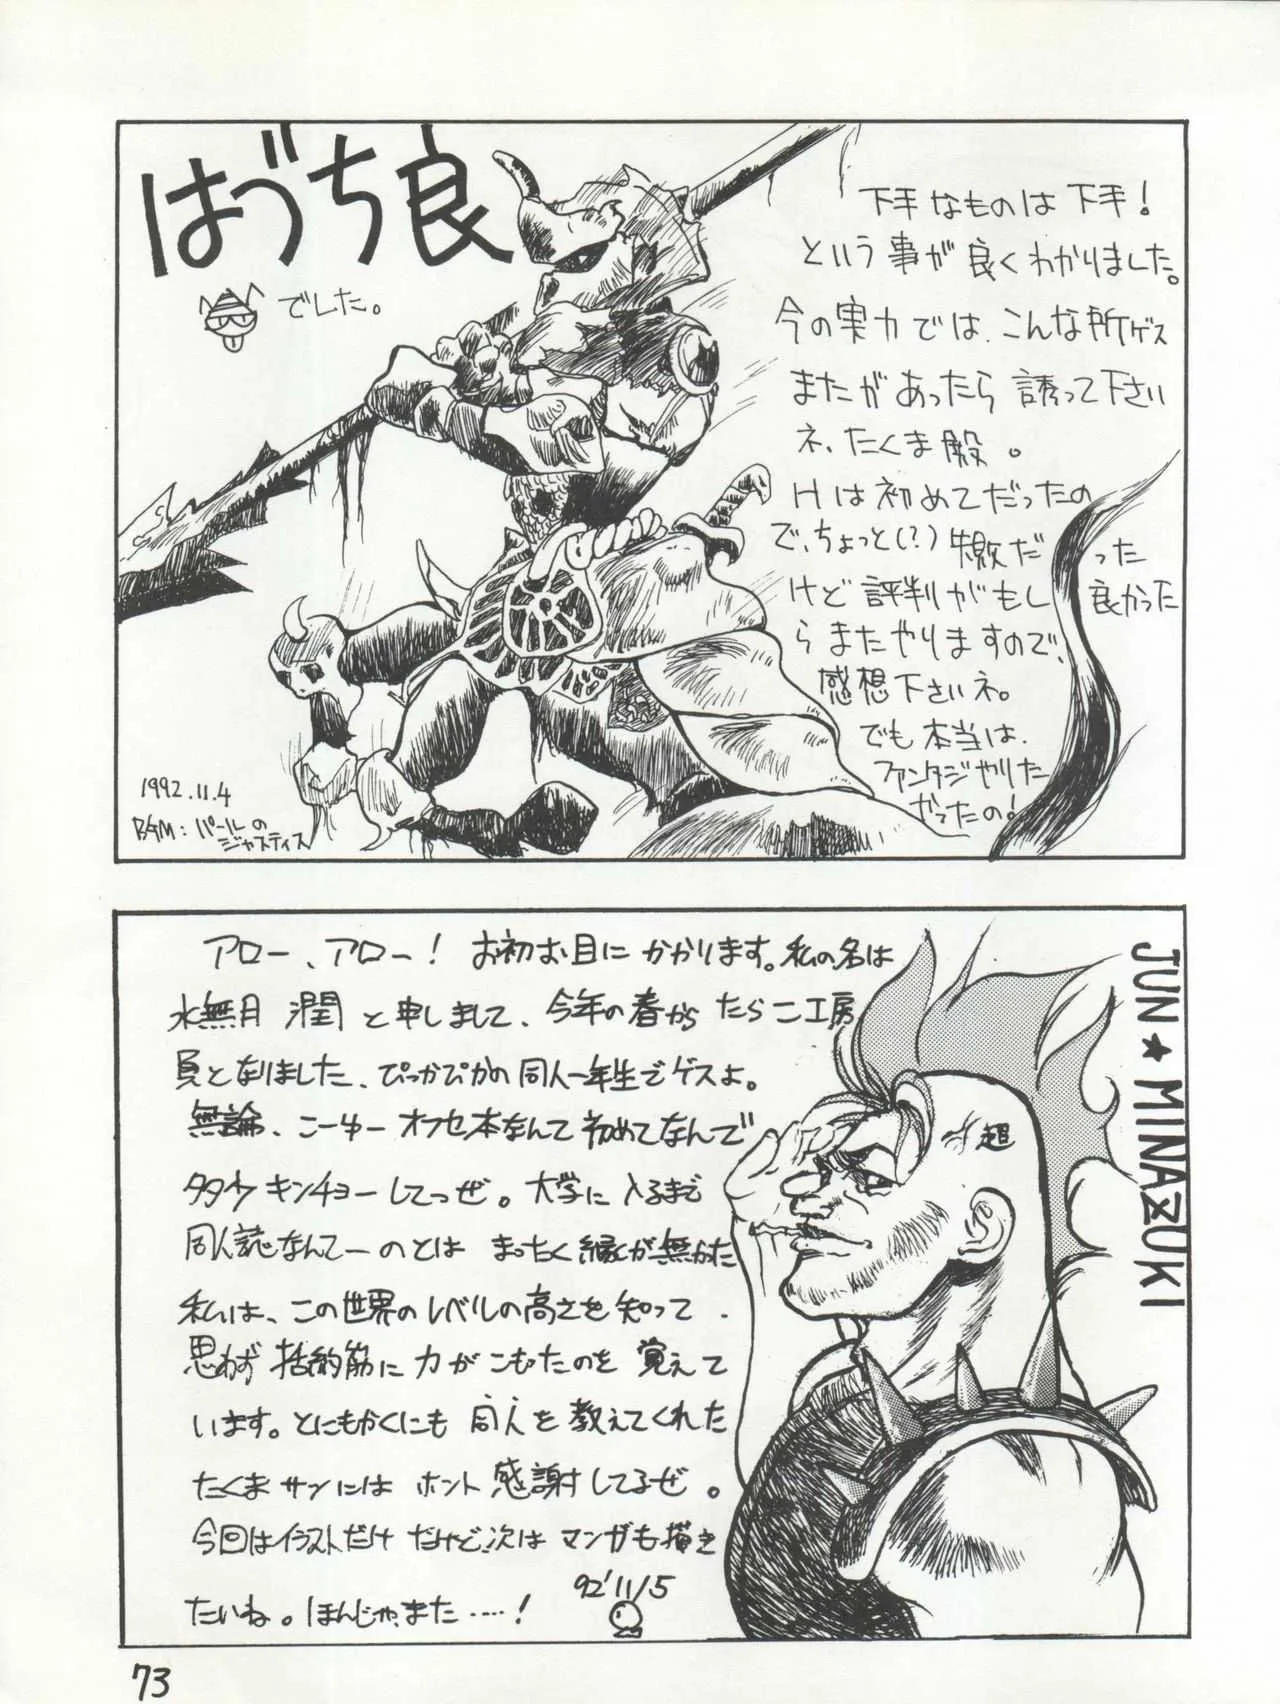 はづち良
でした。
下手なものは下手!
という事が良くわかりました。
今の実力では、こんな所ゲス
またがあったら誘って下さい
ネ、たくま殿。
Hは初めてだったの
で、ちょっと(?)失敗だった
けど評判がもし良かった
らまたやりますので、
感想下さいネ。
でも本当は、
ファンタジやりた
かったの!
1992.11.4
BGM:パールの
ジャスティス
アロー、アロー!お初お目にかかります。私の名は
水無月 潤と申しまして、今年の春からたらこ工房
員となりました、ぴっかぴかの同人一年生でゲスよ。
無論、こーゆーオフセ本なんて初めてなんで
タタタウキンチョーしてっぜ。大学に入るまで
同人誌なんてーのとはまったく縁が無かった
私は、この世界のレベルの高さを知って、
思わず括約筋に力がこもったのを覚えて
います。とにもかくにも同人を教えてくれた
たくまサンにはホント感謝してるぜ。
今回はイラストだけだけど、次はマンガも描き
たいね。ほんじゃ、また……!
92'11/5
JUN★MINAZUKI
超
73